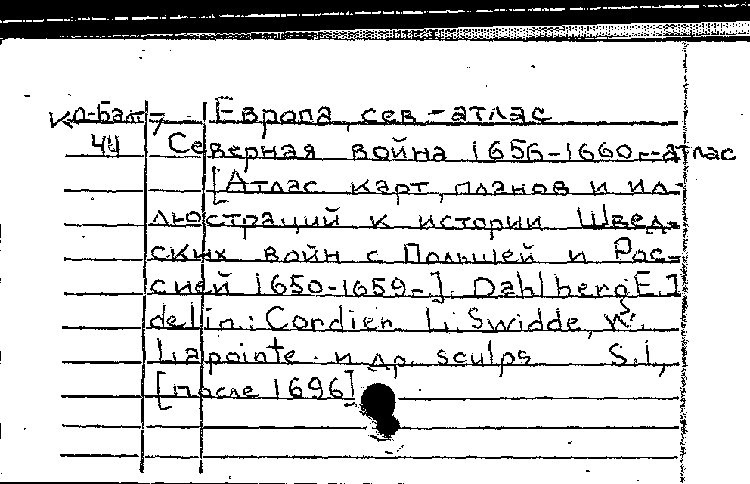 Ко-Балт 7 Европа, сев - атлас
44 Северная война 1656-1660 - атлас
[Атлас карт, планов и ил-
люстраций к истории Швед-
ских войн с Польшей и Рос-
сией 1650-1659-]. Dahlberg E.]
delin: Cordier L. Swidde, N.
Lapointe и др. sculps S.l.,
[после 1696]